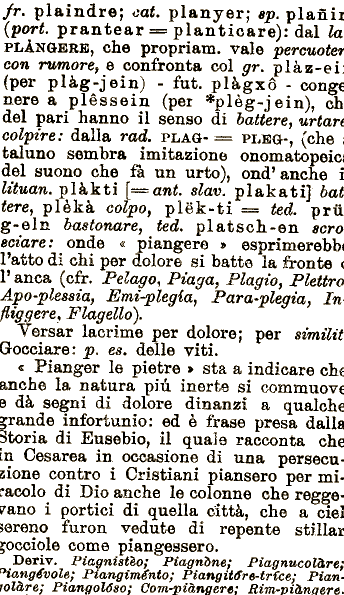 fr. plaindre; cat. planyer; sp. plañir
(port. prantear = planticare): dal la
PLÀNGERE, che propriam. vale percuoter
con rumore, e confronta col gr. plàz-ei
(per plàg-jein) - fut. plàgxô - conge
nere a plêssein (per *plèg-jein), ch
del pari hanno il senso di battere, urtare
colpire: dalla rad. PLAG- = PLEG-, (che a
taluno sembra imitazione onomatopeica
del suono che fà un urto), ond' anche i
lituan. plàkti [= ant. slav. plakati] bat
tere, plèkà colpo, plëk-ti = ted. prü
g-eln bastonare, ted. platsch-en scro
sciare: onde « piangere » esprimerebbe
l'atto di chi per dolore si batte la fronte o
l'anca (cfr. Pelago, Piaga, Plagio, Plettro
Apo-plessia, Emi-plegia, Para-plegia, In-
fliggere, Flagello).
Versar lacrime per dolore; per similit
Gocciare: p. es. delle viti.
« Pianger le pietre » sta a indicare che
anche la natura piú inerte si commuove
e dà segni di dolore dinanzi a qualche
grande infortunio: ed è frase presa dalla
Storia di Eusebio, il quale racconta che
in Cesarea in occasione di una persecu-
zione contro i Cristiani piansero per mi-
racolo di Dio anche le colonne che regge-
vano i portici di quella città, che a ciel
sereno furon vedute di repente stillar
gocciole come piangessero.
Deriv. Piagnistèo; Piagnòne; Piagnucolàre;
Piangévole; Piangiménto; Piangitóre-trice; Pian-
golàre; Piangolóso; Com-piàngere; Rim-piàngere.